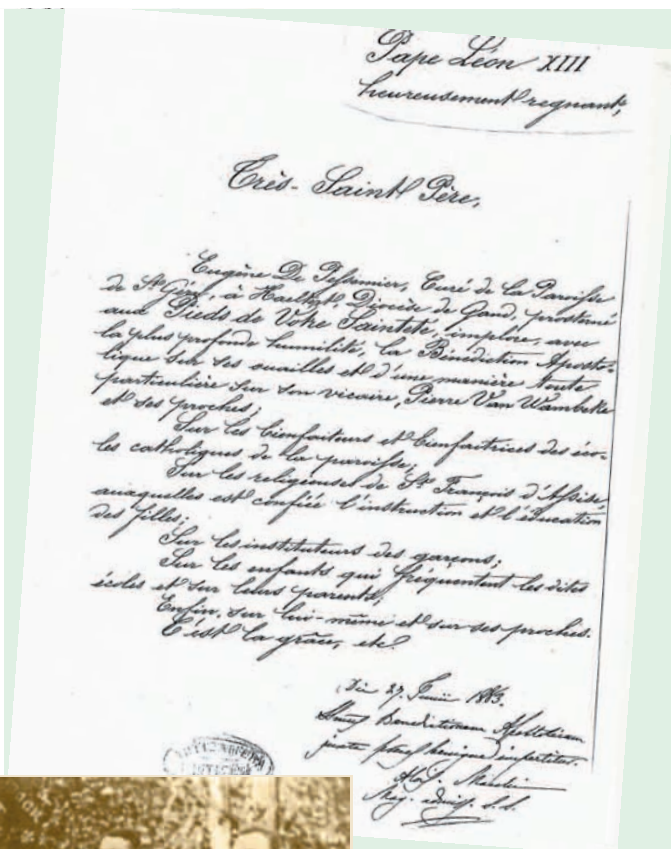 Pape Léon XIII
heureusement regnant,
Très-Saint Père,
Eugène De Pessemier, Curé de la Paroisse
de St Géry, à Haeltert, Diocèse de Gand, prosterné
aux Pieds de Votre Sainteté, implore, avec
la plus profonde humilité, la Bénédiction Aposto-
lique sur ses ouailles et d'une manière toute
particulière sur son vicaire, Pierre Van Wambeke
et ses proches;
Sur les bienfaiteurs et bienfaitrices des éco-
les catholiques de la paroisse;
Sur les religieuses de St François d'Assise
auxquelles est confiée l'instruction et l'éducation
des filles;
Sur les instituteurs des garçons;
Sur les enfants qui fréquentent les dites
écoles et sur leurs parents;
Enfin, sur lui-même et sur ses proches.
C'est la grâce, etc.
Die 27. Junii 1883.
Benedictionem Apostolicam
juxta preces benigne impertitus.